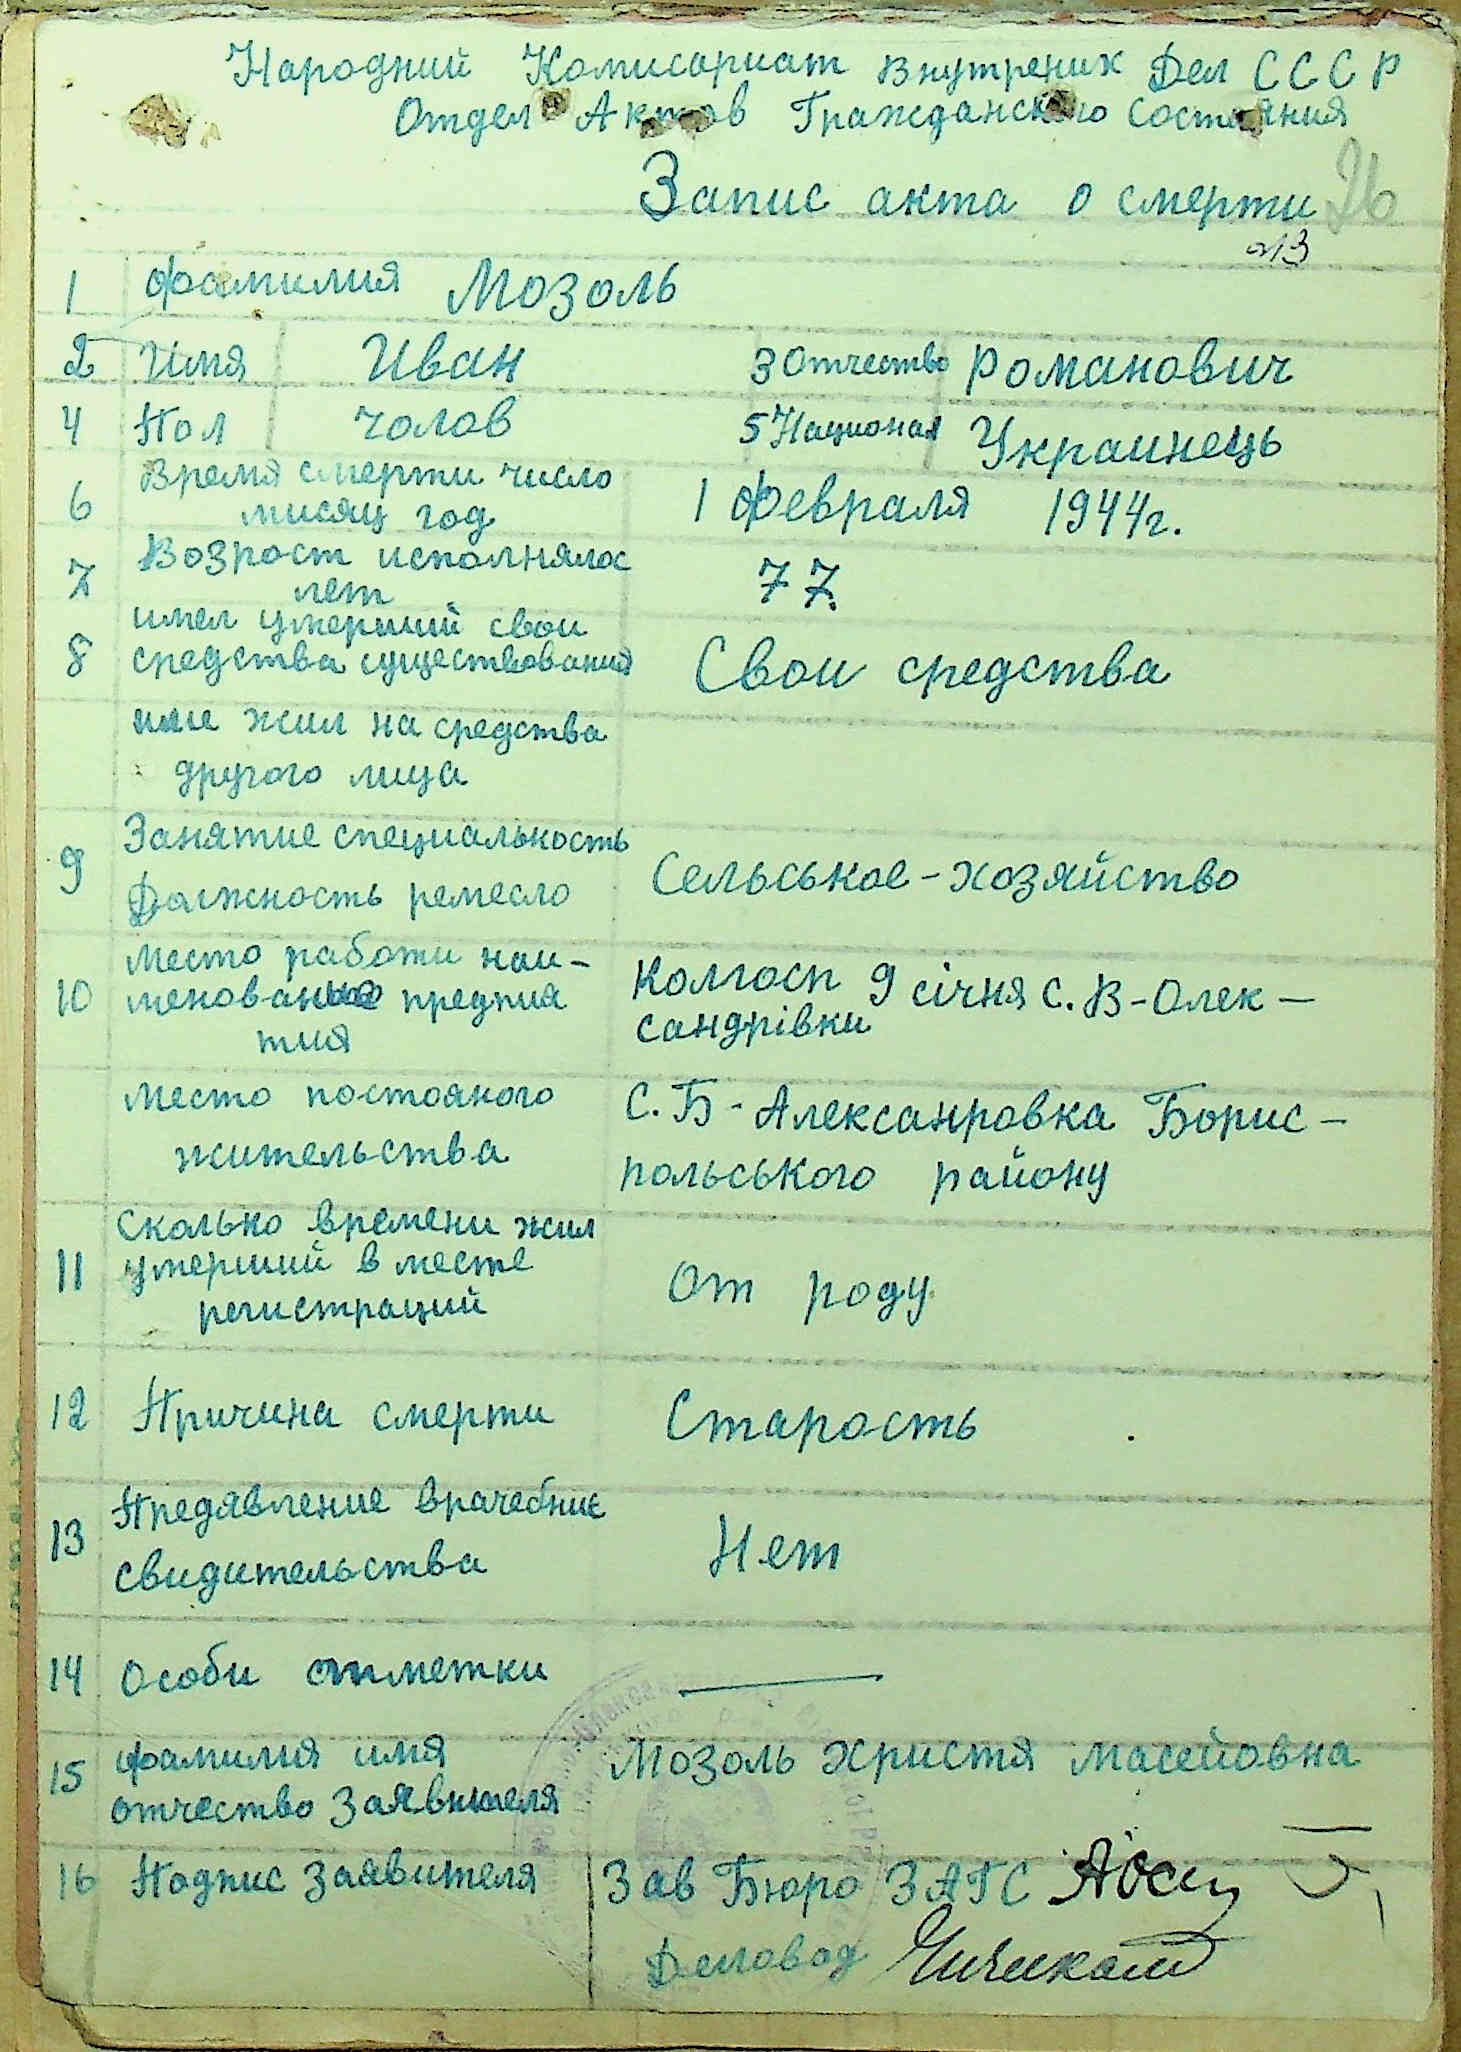 Народний Комисариат Внутрених Дел СССР
Отдел Актов Гражданского Состояния
Запис акта о смерти 26
№13
1 фамилия Мозоль
2 Имя Иван 3 Отчество Романович
4 Пол чолов 5 Национал Украинець
6 Время смерти число мисяц год 1 февраля 1944г.
7 Возрост исполнялос лет 77.
имел умерший свои
8 средства существования Свои средства
или жил на средства
другого лица
Занятие специальность
9 Должность ремесло Сельськое-хозяйство
Место работи наи-
10 менование предприя Колгосп 9 січня С. В-Олек-
тия сандрівки
Место постояного С. Б-Александровка Борис-
жительства польського району
Сколько времени жил
11 умерший в месте От роду
регистраций
12 Причина смерти Старость
13 Предявление врачебние
свидительства Нет
14 Особи отметки —
15 фамилия имя Мозоль Христя Масейовна
отчество Заявителя
16 Подпис Заявителя Зав Бюро ЗАГС
Деловод